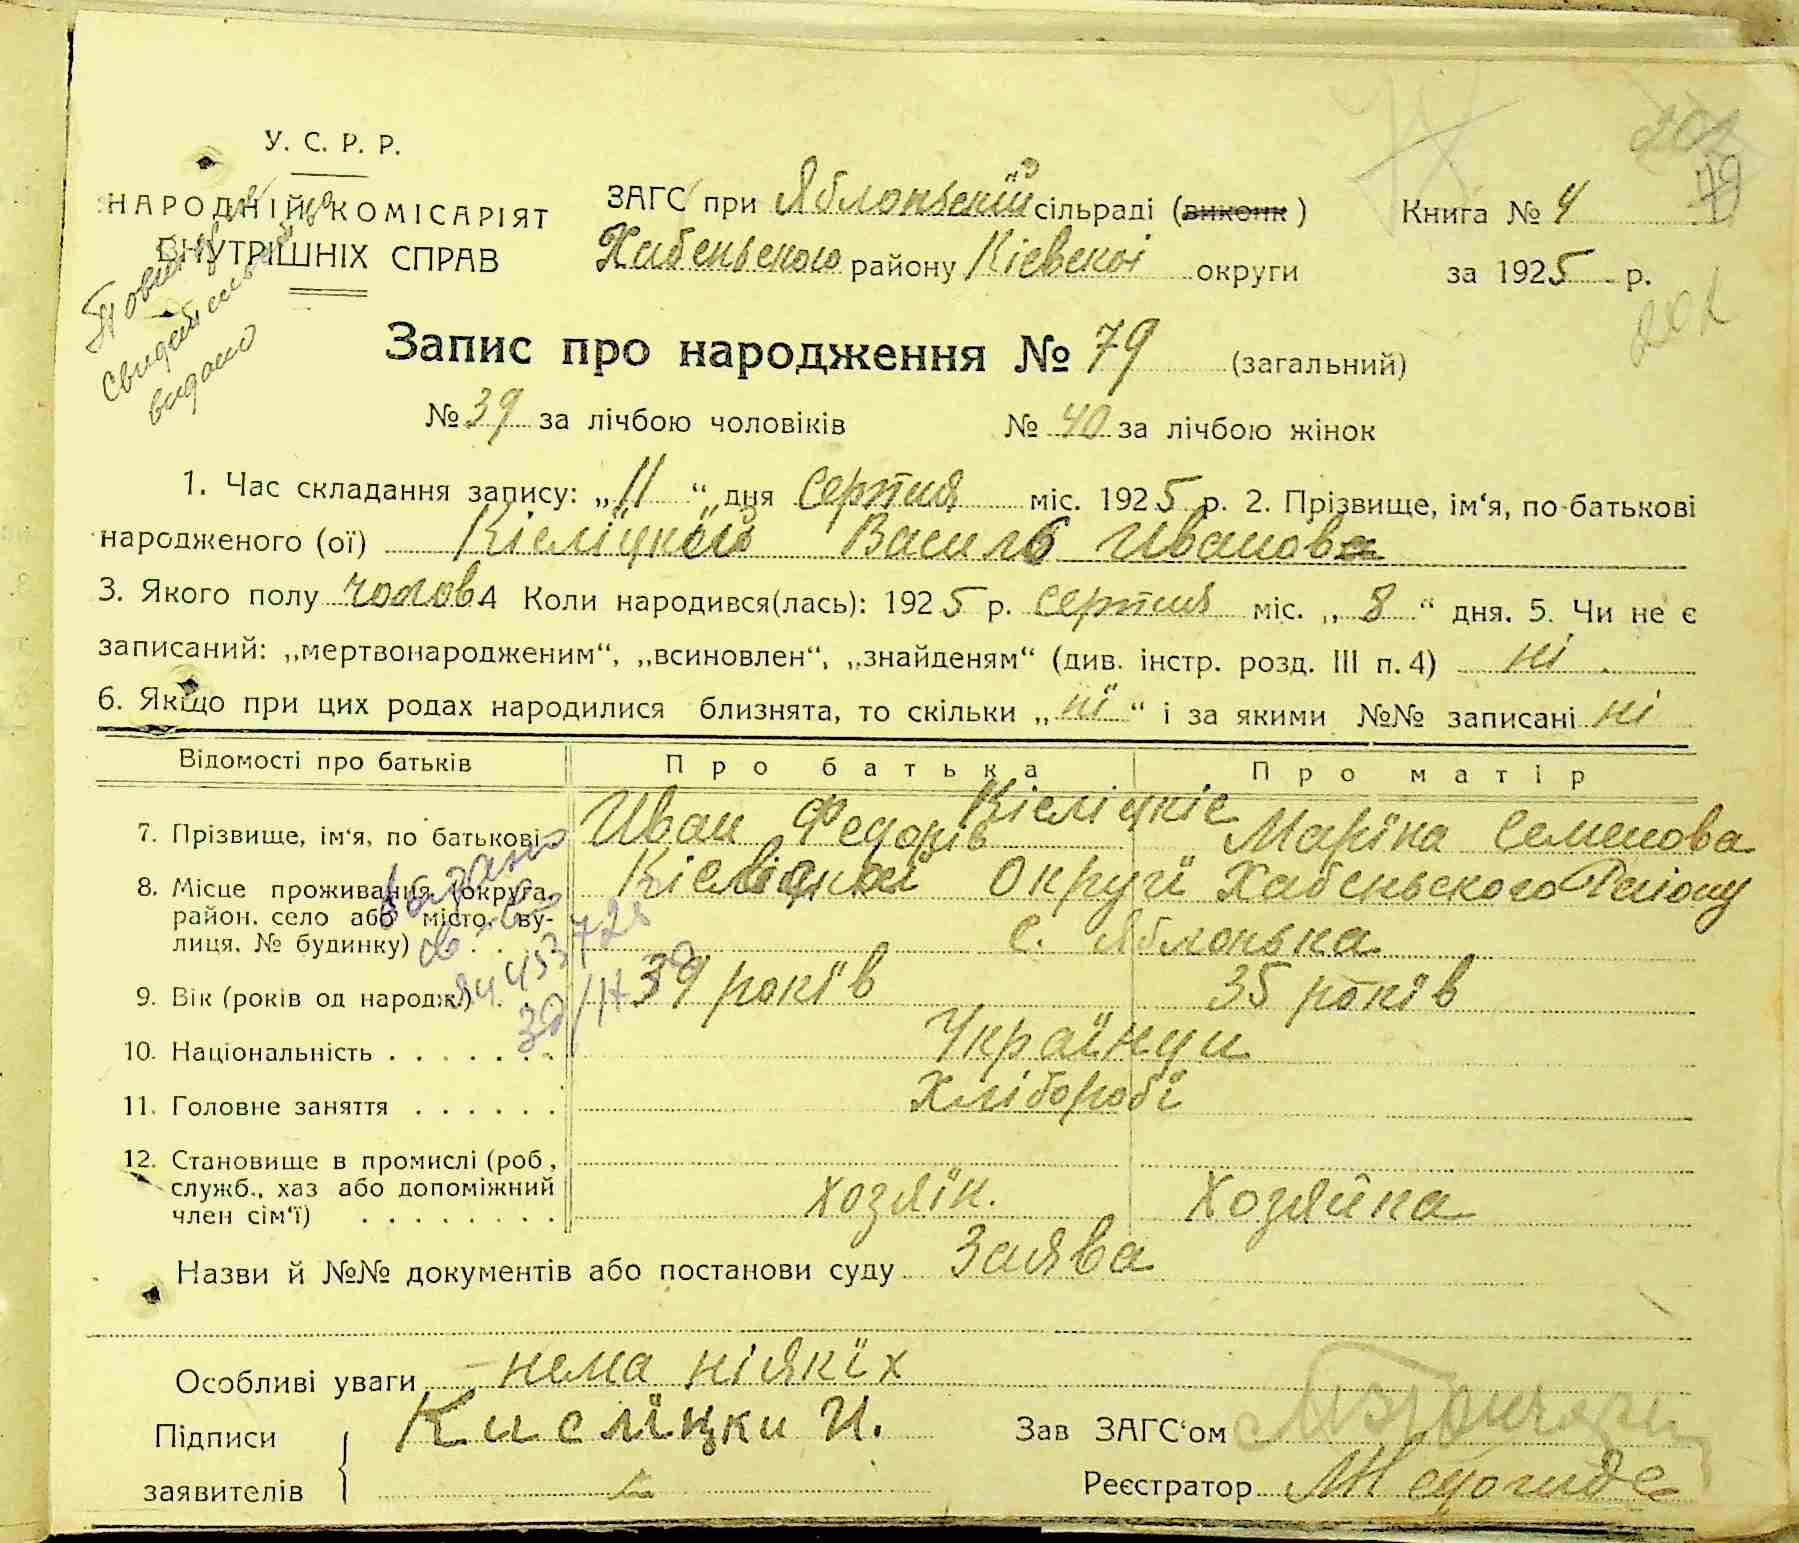 У. С. Р. Р.
НАРОДНІЙ КОМІСАРІЯТ
ВНУТРІШНІХ СПРАВ
свидетельство
видано
ЗАГС при Яблоньскій сільраді (виконк)
Хабеньского району Кіевскоі округи
Книга № 4
за 1925 р.
202
79
201
Запис про народження № 79 (загальний)
№ 39 за лічбою чоловіків № 40 за лічбою жінок
1. Час складання запису: „11“ дня серпня міс. 1925 р. 2. Прізвище, ім‘я, по-батькові
народженого (ої) Кіеліцкій Василь Иванова
3. Якого полу чолов. 4 Коли народився(лась): 1925 р. серпня міс. „8“ дня. 5. Чи не є
записаний: „мертвонародженим“, „всиновлен“, „знайденям“ (див. інстр. розд. III п. 4) ні
6. Якщо при цих родах народилися близнята, то скільки „ні“ і за якими №№ записані ні
Відомості про батьків Про батька Про матір
7. Прізвище, ім‘я, по батькові Кіеліцкіе Иван Федорів Маріна Семенова
8. Місце проживання (округа, район, село або місто, ву-
лиця, № будинку) Округи Хабеньского Району
с. Яблонька
9. Вік (років од народж.) 39 років 35 років
10. Національність Українци
11. Головне заняття Хліборобі
12. Становище в промислі (роб., служб., хаз або допоміжний
член сім‘ї) хозяін. Хозяйка
Назви й №№ документів або постанови суду Заява
Особливі уваги - нема ніякіх
Підписи
заявителів Кислїцки И.
Зав ЗАГС‘ом
Реєстратор